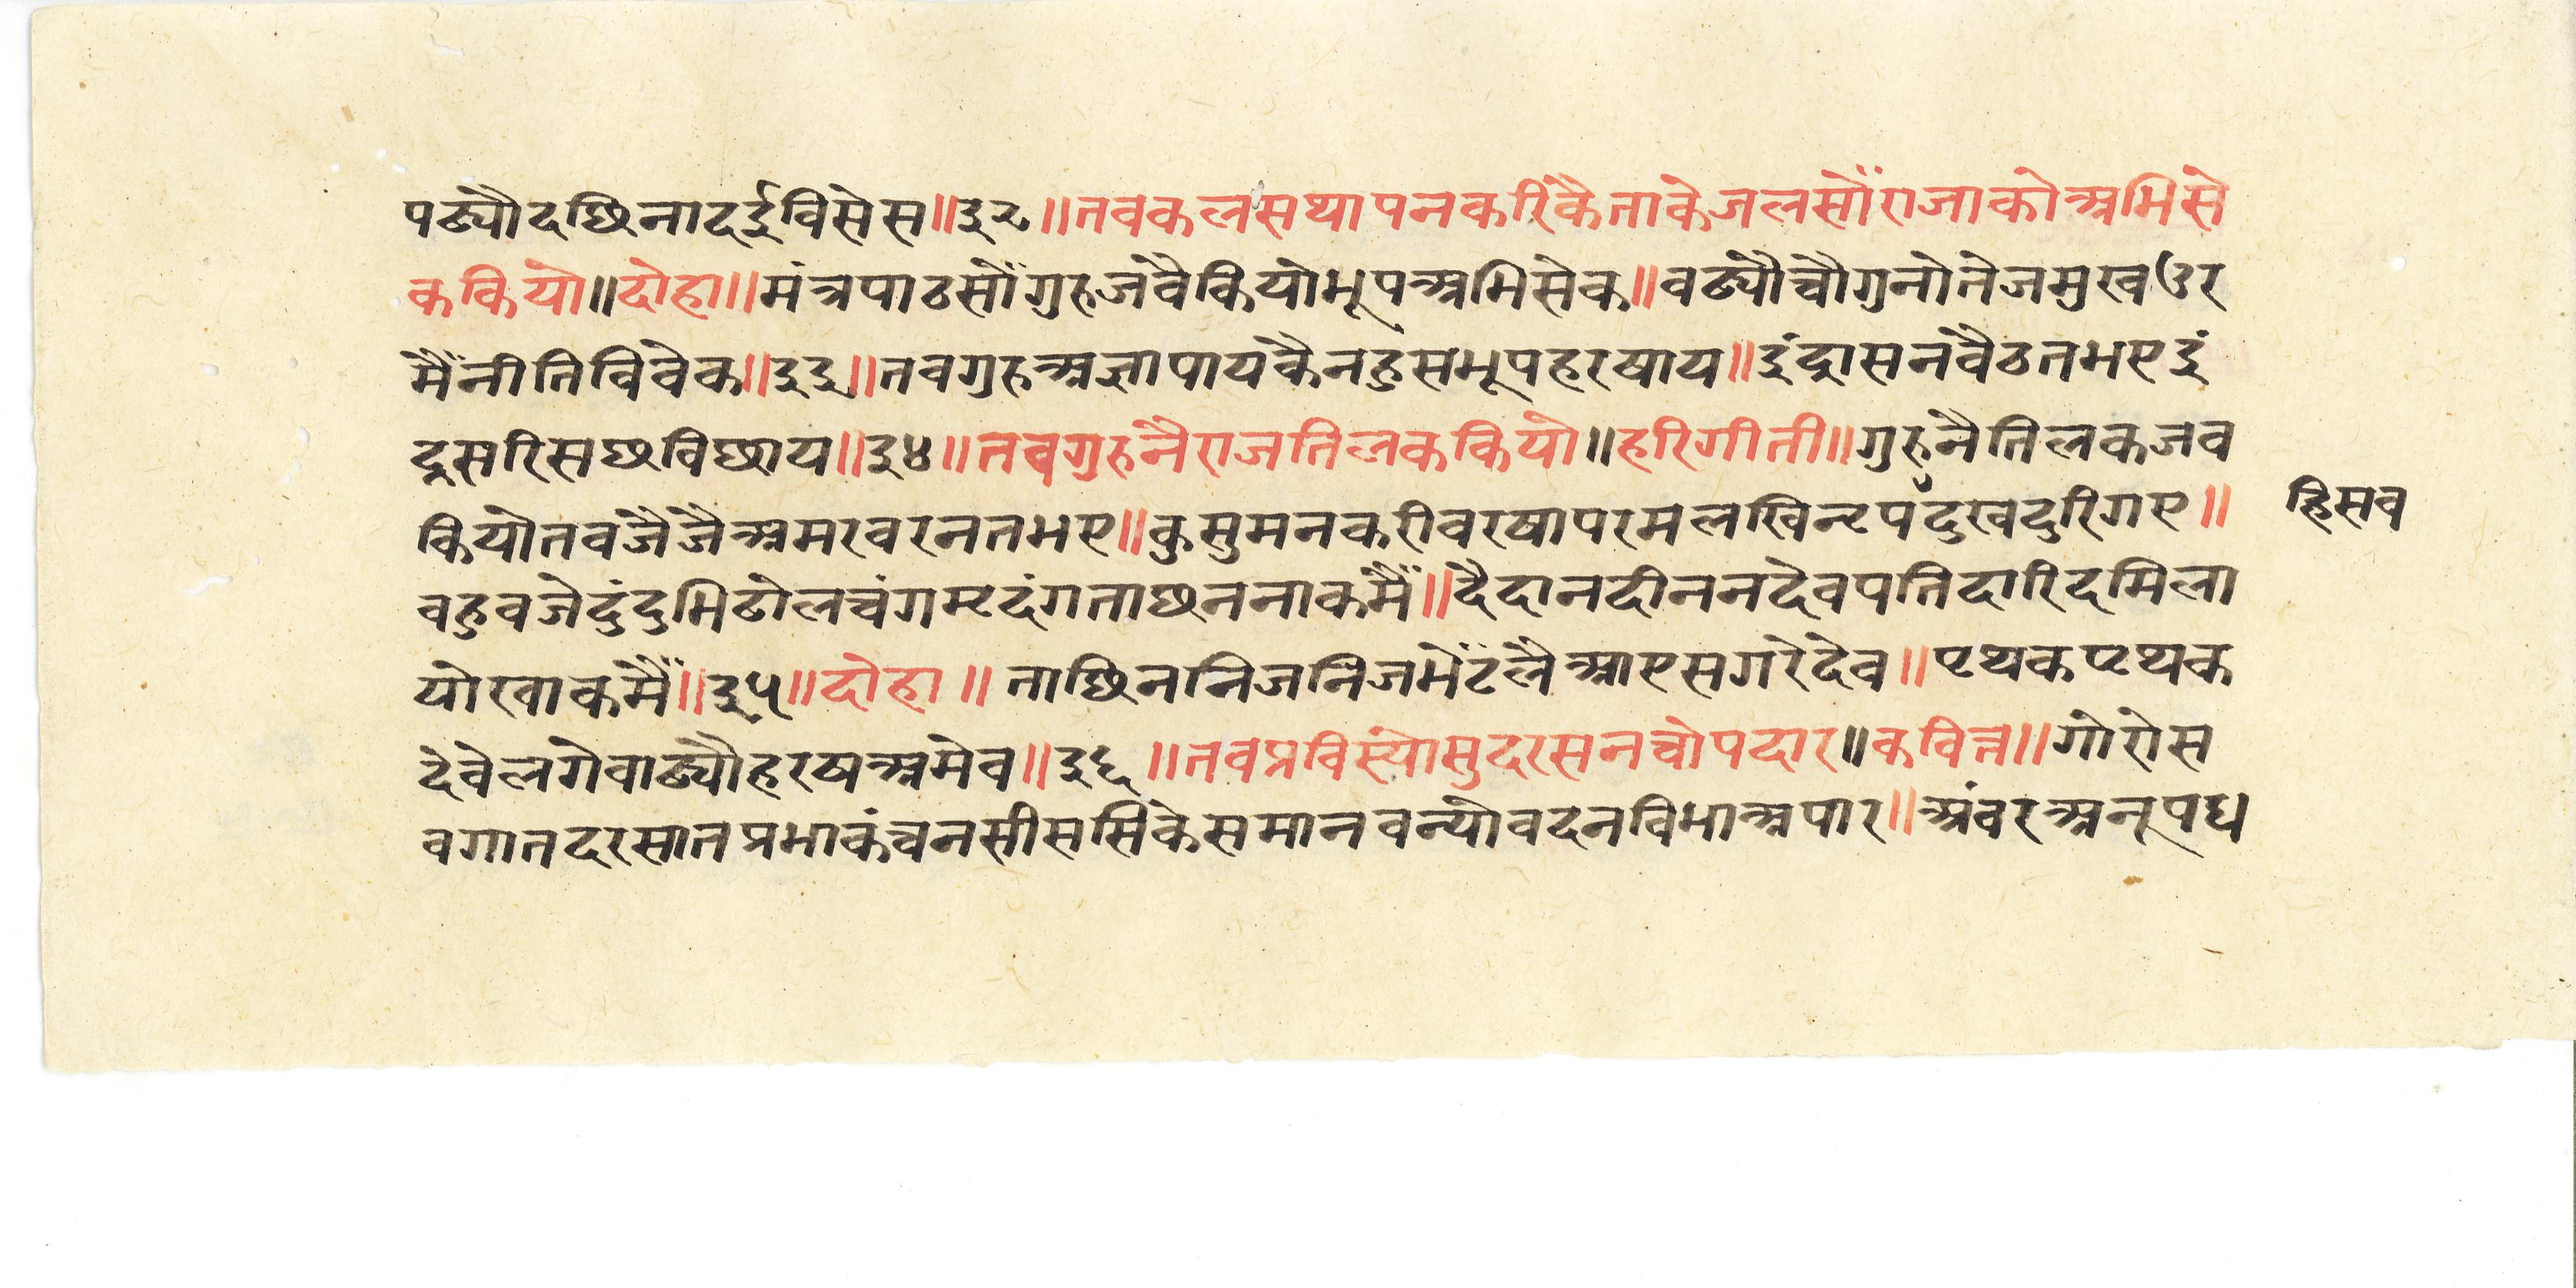 पढ्यौदछिनादईविसेस॥३२॥तवकलसथापनकरिंकैताकेजलसौंराजाकोअभिसे
ककियो॥दोहा॥मंत्रपाठसौंगुरुजवैकियोभूपअभिसेक॥वढ्यौचौगुनोतेजमुखउर
मैंनीतिविवेक॥३३॥तवगुरुअज्ञापायकैनहुसभूपहरषाय॥इंद्रासनवैठतभएइं
द्रसरिसछविछाय॥३४॥तवगुरुनैराजतिलककियो॥हरिगीती॥गुरुनैतिलकजव
कियौतवजैजैअमरवरनतभए॥कुसुमनकरीवरषापरमलखिनृपँदुखदुरिगए॥ हिसव
वहुवजेदुंदुभिढोलचंगमृदंगताछननाकमैं॥दैदानदीननदेवपतिदारिदमिला
योखाकमैं॥३५॥दोहा॥ ताछिननिजनिजभेंटलैआएसगरेदेव॥पृथकपृथक
देवेलगेवाढ्यौहरषअमेव॥३६॥तवप्रविस्यौसुदरसनचोपदार॥कवित्त॥गोरोस
वगातदरसातप्रभाकंचनसीससिकेसमानवन्योवदनविभाअपार॥अंवरअनूपध